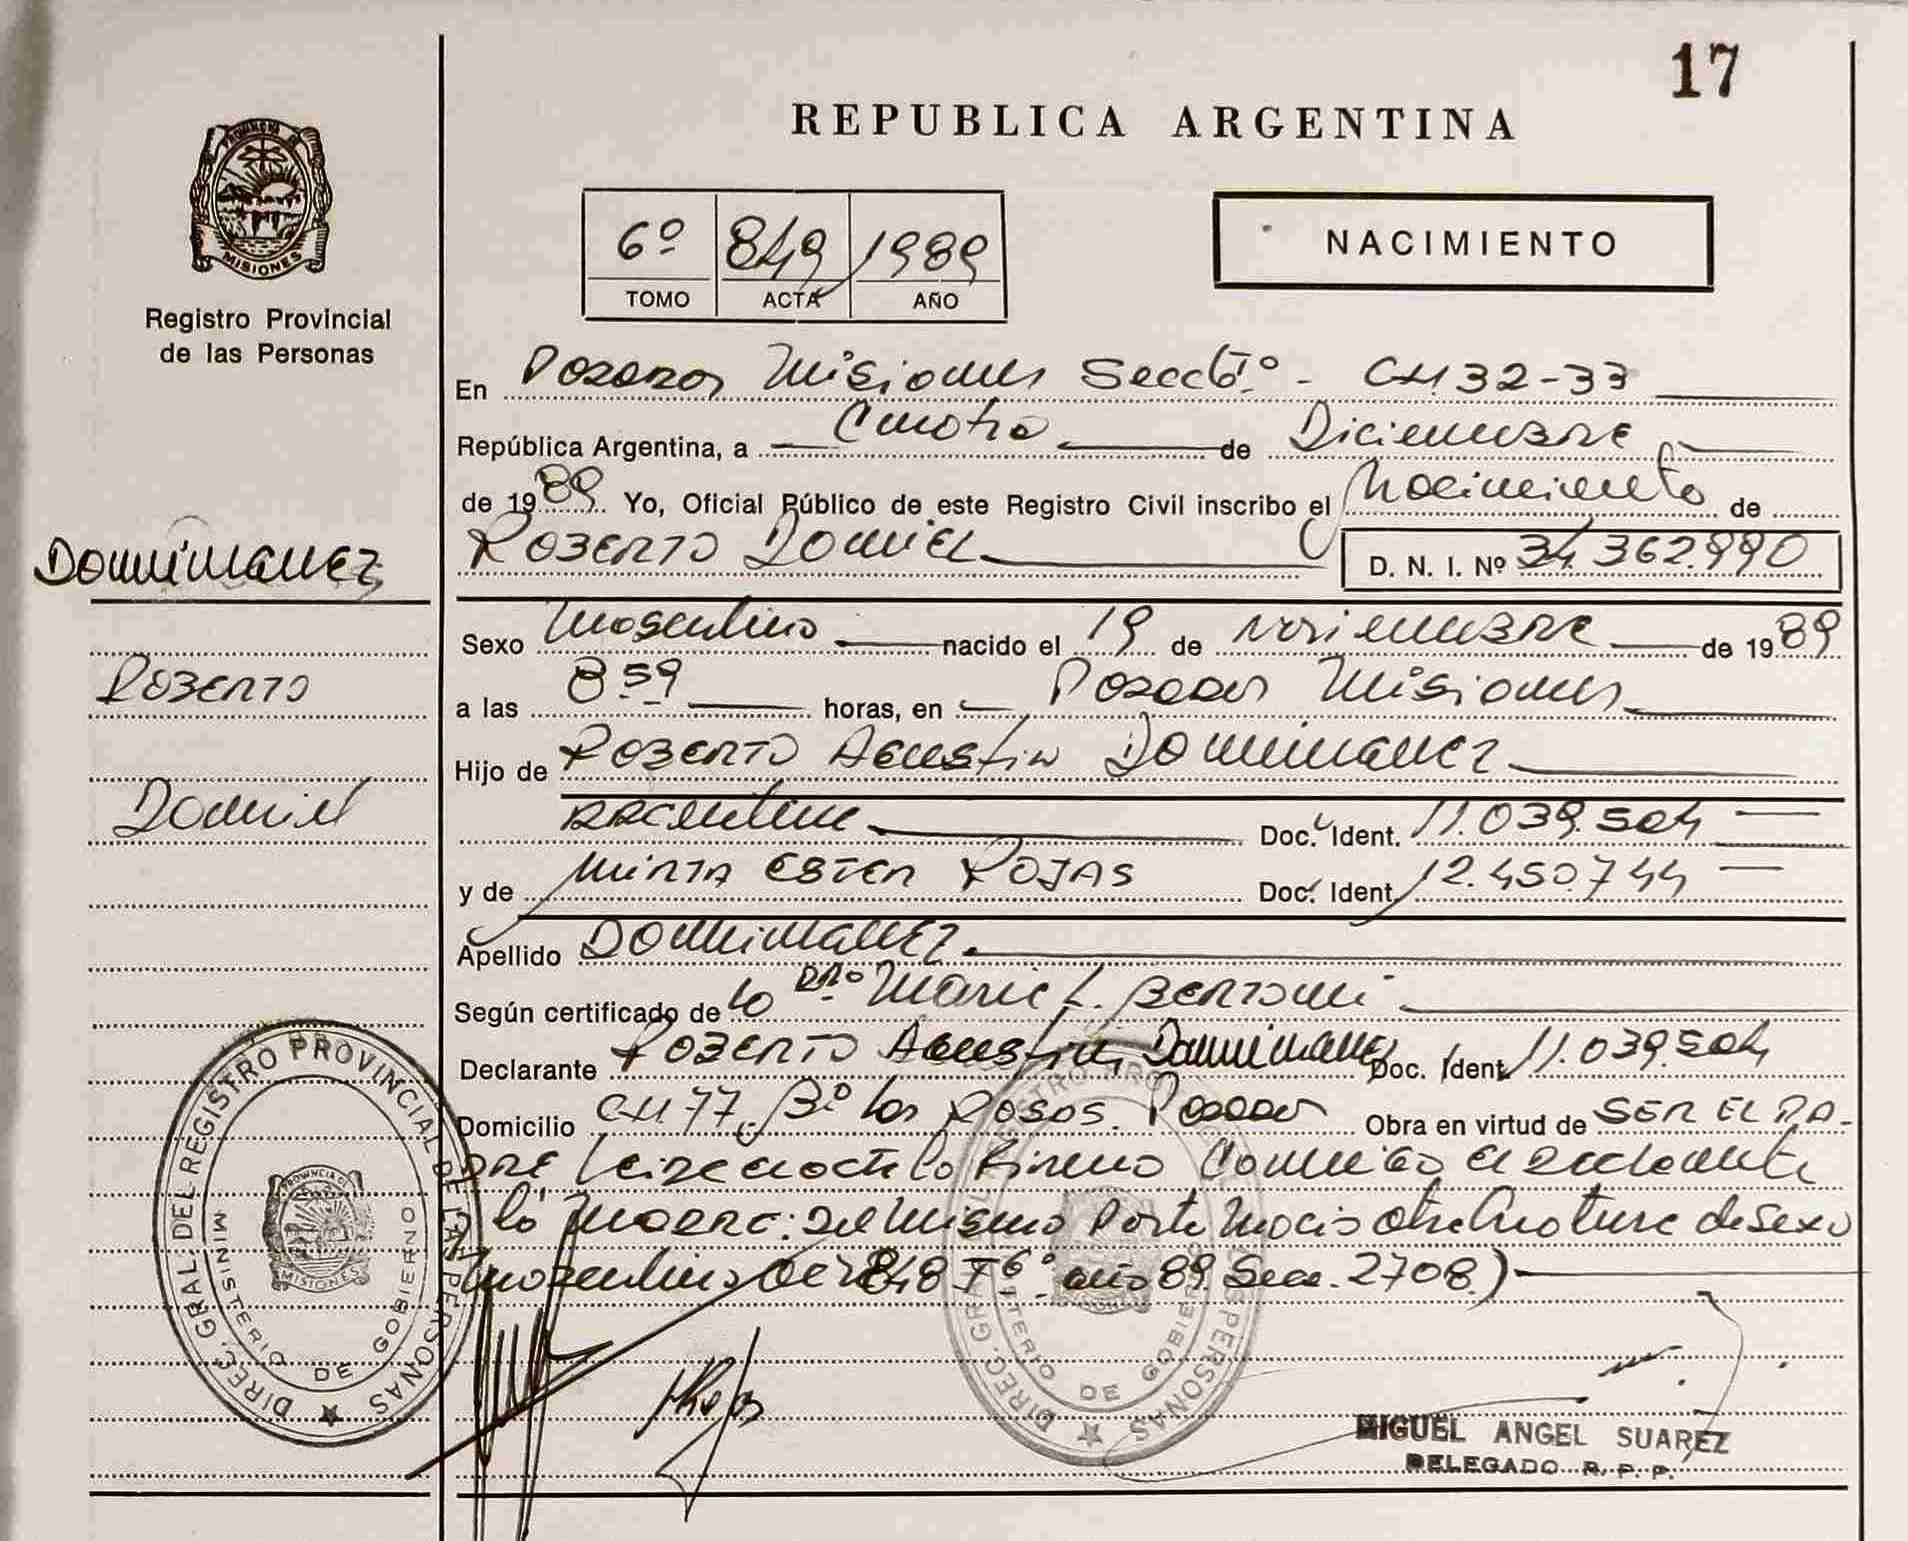 17
REPUBLICA ARGENTINA
PROVINCIA DE
MISIONES
Registro Provincial
de las Personas
6º 849 1989
TOMO ACTA AÑO
NACIMIENTO
En Posadas Misiones Secc 6ª - CH 32-33
República Argentina, a Cuatro de Diciembre
de 1989 Yo, Oficial Público de este Registro Civil inscribo el Nacimiento de
Roberto Daniel D. N. I. Nº 34.362.990
Sexo Masculino nacido el 19 de Noviembre de 1989
a las 8 59 horas, en Posadas Misiones
Hijo de Roberto Agustin
Argentino Doc. Ident. 11.039.504
y de Mirta Ester Rojas Doc. Ident. 12.450.744
Apellido
Según certificado de la Dra. Bertoni
Declarante Roberto Agustin Doc. Ident. 11.039.504
Domicilio CH 77 Bº Las Rosas Posadas Obra en virtud de SER EL PA-
DRE Conmigo el declarante
la Madre: del mismo Parto Nacio otra Criatura de sexo
Masculino 848 Tº 6º año 89 Secc. 2708)
Roberto
Daniel
DIREC. GRAL DEL REGISTRO PROVINCIAL DE LAS PERSONAS
MINISTERIO DE GOBIERNO
PROVINCIA DE
MISIONES
DIREC. GRAL DEL REGISTRO PROVINCIAL DE LAS PERSONAS
MINISTERIO DE GOBIERNO
MIGUEL ANGEL SUAREZ
DELEGADO R. P. P.